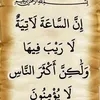 إِنَّ السَّاعَةَ لَآتِيَةٌ
لَا رَيْبَ فِيهَا
وَلَٰكِنَّ أَكْثَرَ النَّاسِ
لَا يُؤْمِنُونَ